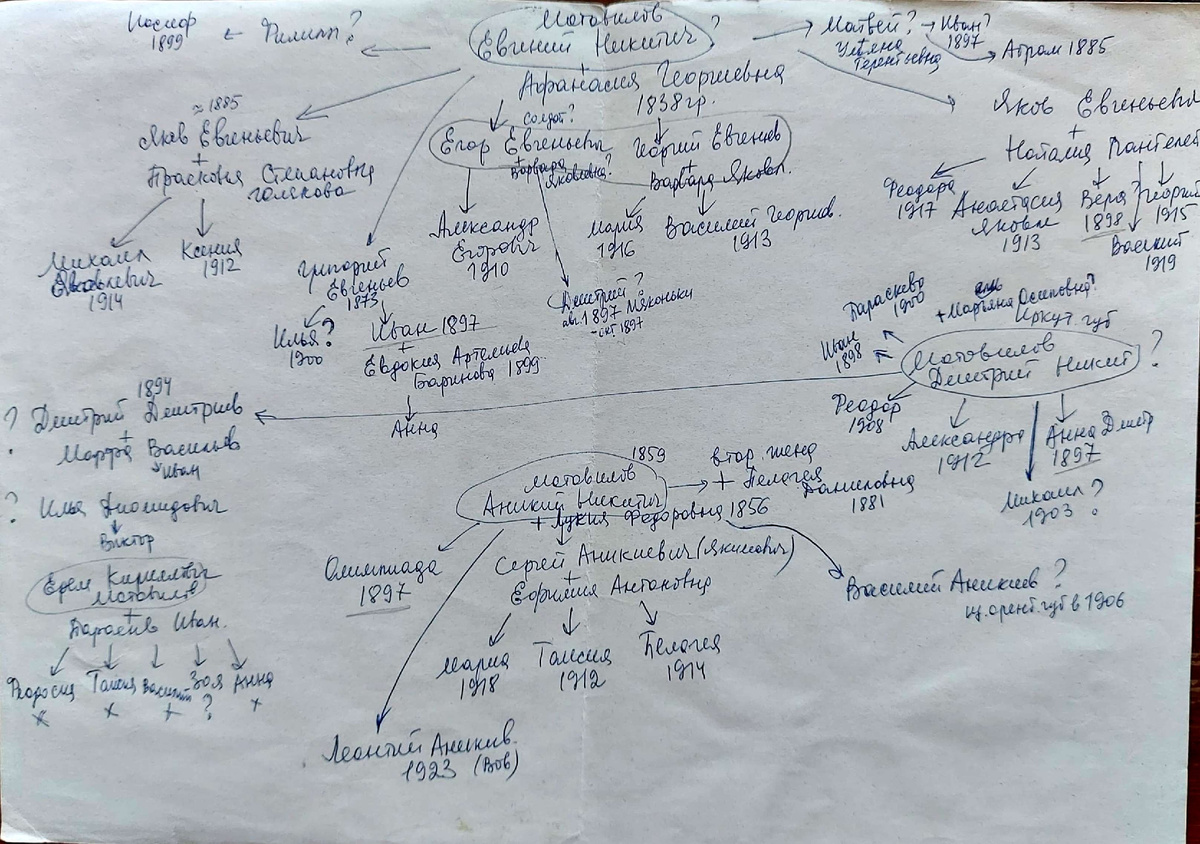 Иосиф
1899
Филипп?
Мотовилов
Евгений Никитич ?
+
Афанасия Георгиевна
1838 гр.
Матвей? → Иван?
1897
Ульяна
Терентьевна
Абрам 1885
≈ 1885
Яков Евгеньевич
+
Прасковья Степановна
Голякова
Михаил
Яковлевич
1914
Ксения
1912
Григорий
Евгеньев
1873
Илья?
1900
Иван 1897
+
Евдокия Артемьева
Баринова 1899
Анна
солдат?
Егор Евгеньевич
+
Варвара
Яковлевна?
Александр
Егорович
1910
Дмитрий?
1897 Мяконьки
- окт 1897
Георгий Евгеньев
+
Варвара Яковл.
Мария
1916
Василий Георгиев.
1913
Яков Евгеньевич
+
Наталия Пантелей
Феодора
1917
Анастасия
Яковл
1913
Вера?
1898
Георгий
1915
Василий
1919
+ Марьяна Осиповна?
Иркут. губ
Параскева
1900
Иван
1898
Мотовилов
Дмитрий Никит ?
Феодор
1908
Александра
1912
Анна Дмитр
1897
Михаил?
1903
1894
? Дмитрий Дмитриев
+
Марфа Васильев
Иван
? Илья Диомидович
Виктор
Ефим Кириллович
Мотовилов
+
Параскева Иван.
Феодосия
Таисия
Василий
Зоя
?
Анна
1859
Мотовилов
Аникий Никитич
+ Лукия Федоровна 1856
втор жена
+ Пелагея
Данииловна
1881
Олимпиада
1897
Сергей Аникиевич (Якимович)
+
Ефимия Антоновна
Мария
1918
Таисия
1912
Пелагея
1914
Василий Аникиев ?
из оренб. губ в 1906
Леонтий Аникиев.
1923 (Вов)